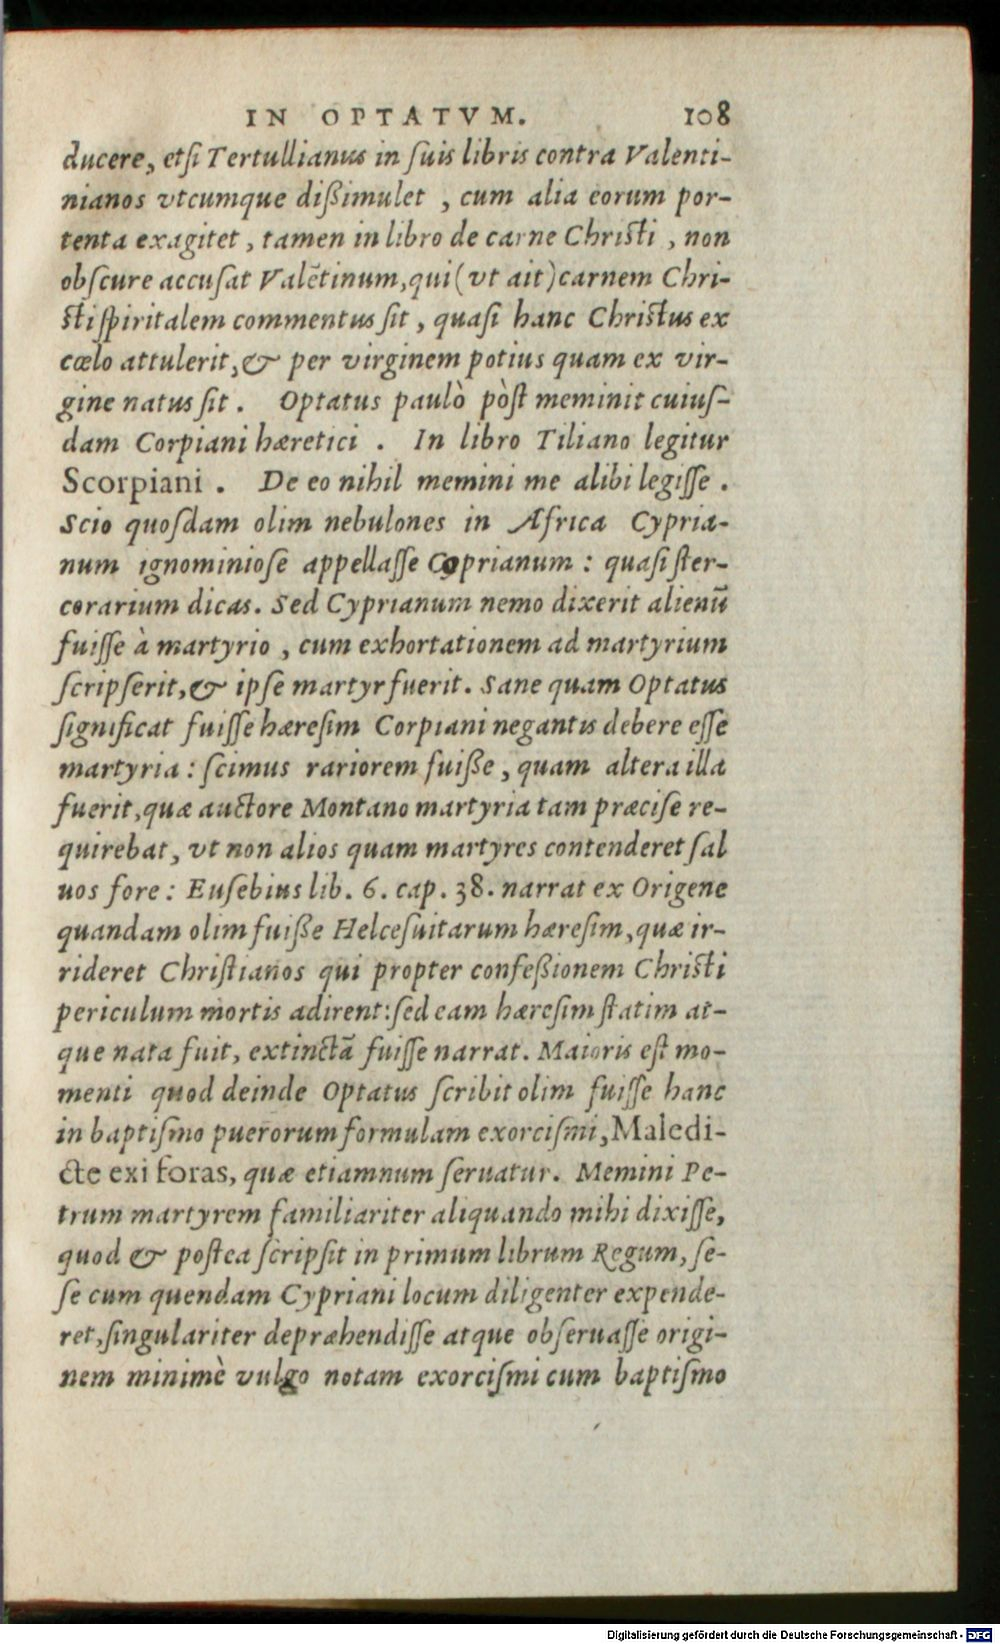 IN OPTATVM. 108
ducere, etſi Tertullianus in ſuis libris contra Valenti-
nianos vtcumque dißimulet , cum alia eorum por-
tenta exagitet , tamen in libro de carne Chriſti , non
obſcure accuſat Valētinum,qui (vt ait) carnem Chri-
ſti ſpiritalem commentus ſit , quaſi hanc Chriſtus ex
cœlo attulerit,& per virginem potius quam ex vir-
gine natus ſit . Optatus paulò pòſt meminit cuiuſ-
dam Corpiani hæretici . In libro Tiliano legitur
Scorpiani . De eo nihil memini me alibi legiſſe .
Scio quoſdam olim nebulones in Africa Cypria-
num ignominioſe appellaſſe Coprianum : quaſi ſter-
corarium dicas. Sed Cyprianum nemo dixerit alienū
fuiſſe à martyrio , cum exhortationem ad martyrium
ſcripſerit,& ipſe martyr fuerit. Sane quam Optatus
ſignificat fuiſſe hæreſim Corpiani negantis debere eſſe
martyria : ſcimus rariorem fuiße , quam altera illa
fuerit,quæ auctore Montano martyria tam præciſe re-
quirebat, vt non alios quam martyres contenderet ſal
uos fore : Euſebius lib. 6. cap. 38. narrat ex Origene
quandam olim fuiße Helceſuitarum hæreſim,quæ ir-
rideret Chriſtianos qui propter confeßionem Chriſti
periculum mortis adirent:ſed eam hæreſim ſtatim at-
que nata fuit, extinctā fuiſſe narrat. Maioris eſt mo-
menti quod deinde Optatus ſcribit olim fuiſſe hanc
in baptiſmo puerorum formulam exorciſmi,Maledi-
cte exi foras, quæ etiamnum ſeruatur. Memini Pe-
trum martyrem familiariter aliquando mihi dixiſſe,
quod & poſtea ſcripſit in primum librum Regum, ſe-
ſe cum quendam Cypriani locum diligenter expende-
ret,ſingulariter depræhendiſſe atque obſeruaſſe origi-
nem minimè vulgo notam exorciſmi cum baptiſmo
Digitalisierung gefördert durch die Deutsche Forschungsgemeinschaft - DFG